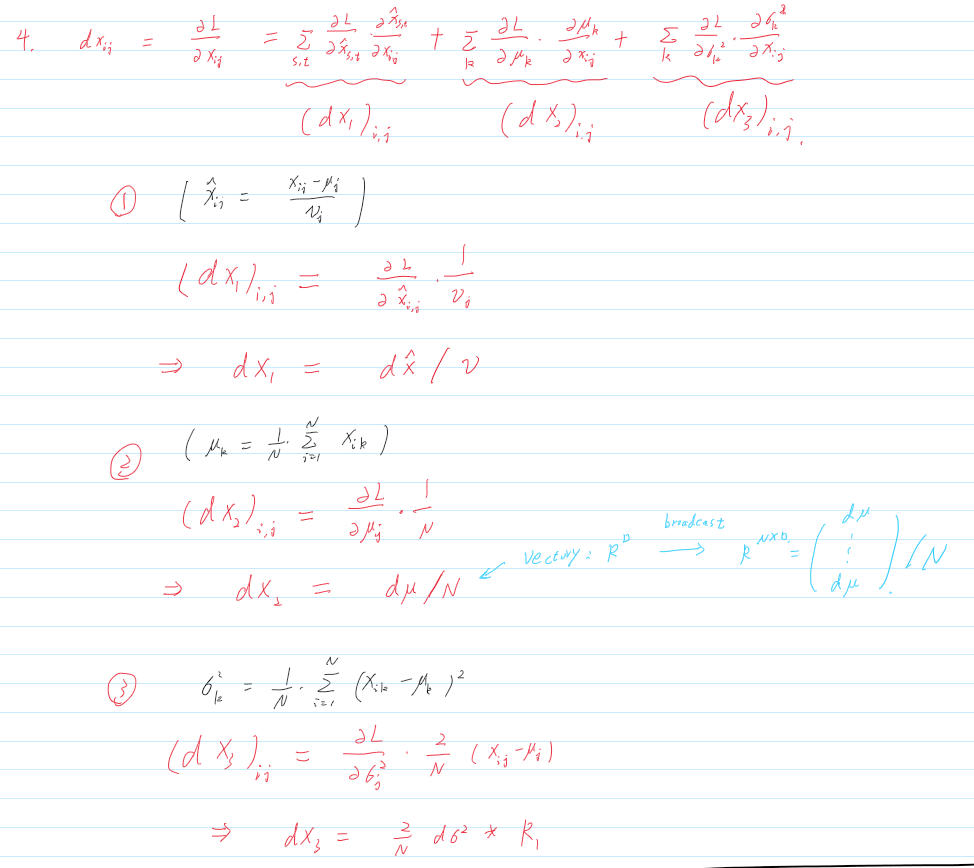 4. dx_{ij} = ∂L/∂x_{ij} = Σ_{s,t} ∂L/∂x̂_{s,t} · ∂x̂_{s,t}/∂x_{ij} + Σ_k ∂L/∂μ_k · ∂μ_k/∂x_{ij} + Σ_k ∂L/∂σ_k² · ∂σ_k²/∂x_{ij}
(dx₁)_{i,j} (dx₂)_{i,j} (dx₃)_{i,j}.
① ( x̂_{ij} = (x_{ij} - μ_j)/v_j )
(dx₁)_{i,j} = ∂L/∂x̂_{i,j} · 1/v_j
⇒ dx₁ = dx̂ / v
② ( μ_k = 1/N · Σ_{i=1}^{N} x_{ik} )
(dx₂)_{i,j} = ∂L/∂μ_j · 1/N
⇒ dx₂ = dμ/N ↙ vectory: R^D broadcast → R^{N×D} = ( dμ ⋮ dμ ) / N
③ σ_k² = 1/N · Σ_{i=1}^{N} (x_{ik} - μ_k)²
(dx₃)_{ij} = ∂L/∂σ_j² · 2/N (x_{ij} - μ_j)
⇒ dx₃ = 2/N dσ² * R₁